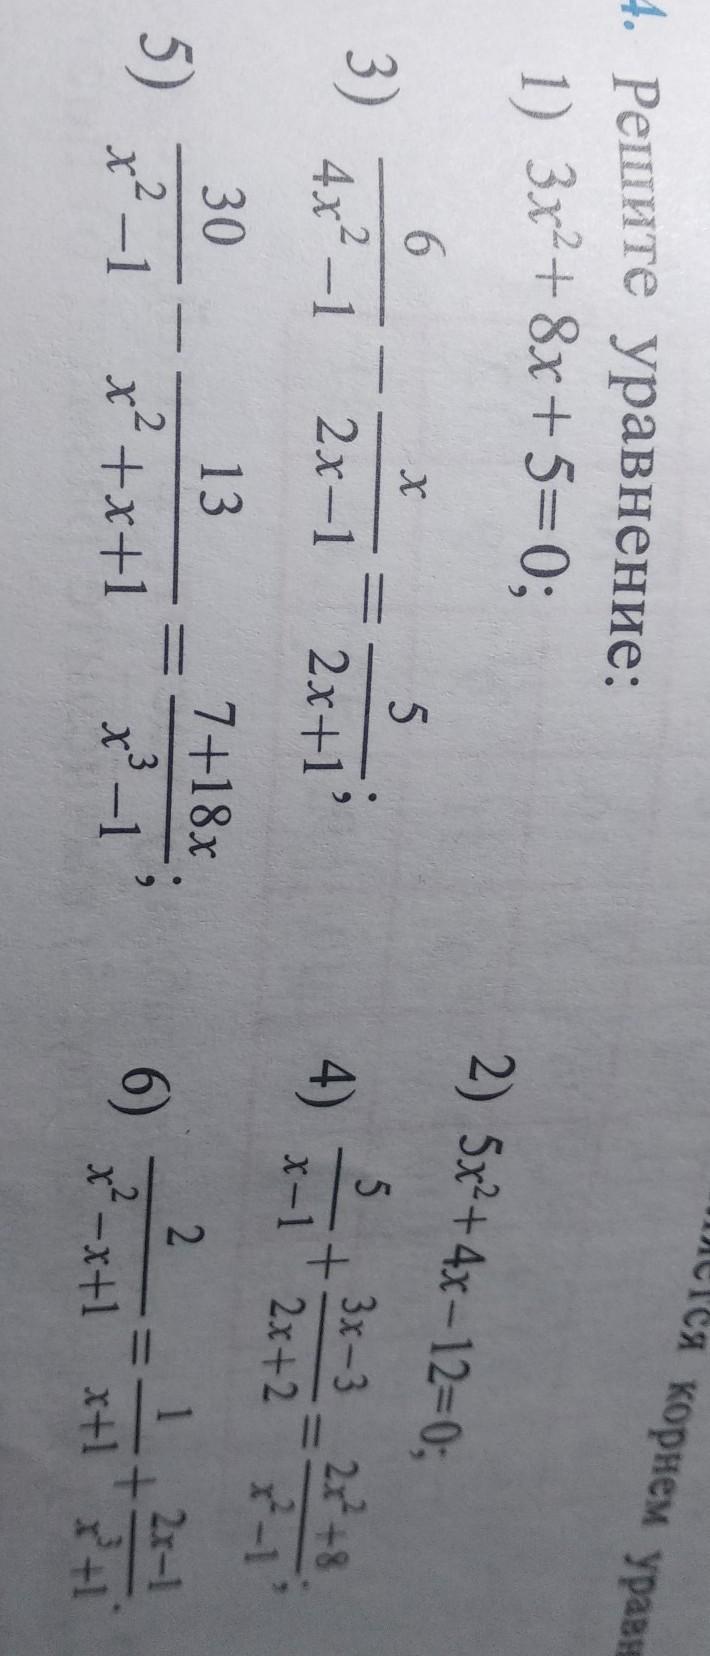 4. Решите уравнение:
1) 3x²+8x+5=0; 2) 5x²+4x−12=0;
3) 6/(4x²−1) − x/(2x−1) = 5/(2x+1); 4) 5/(x−1) + (3x−3)/(2x+2) = (2x²+8)/(x²−1);
5) 30/(x²−1) − 13/(x²+x+1) = (7+18x)/(x³−1); 6) 2/(x²−x+1) = 1/(x+1) + (2x−1)/(x³+1).
корнем